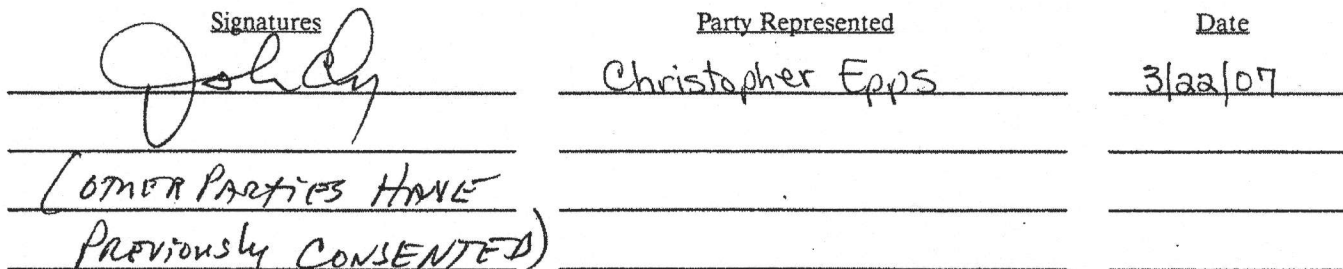 Signatures Party Represented Date
John Christopher Epps 3/22/07
(OTHER PARTIES HAVE
PREVIOUSLY CONSENTED)